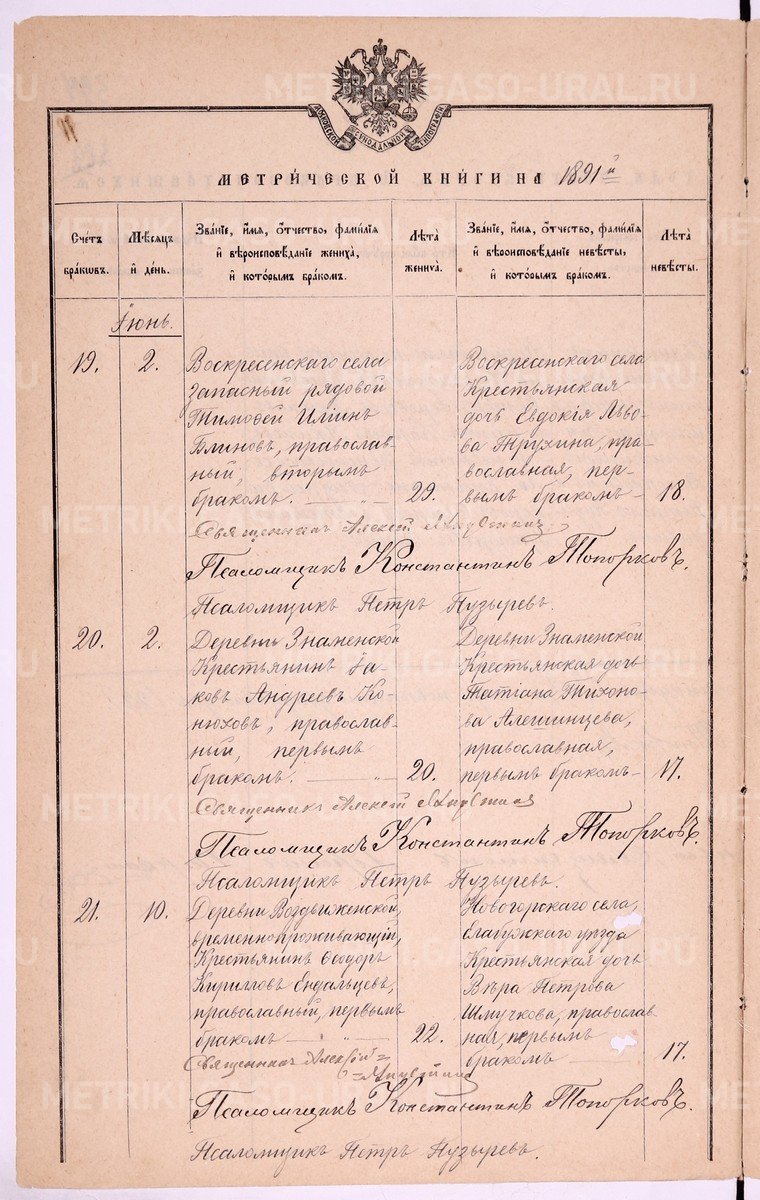 МОСКОВСКОЙ СѴНОДАЛЬНОЙ ТИПОГРАФІИ
МЕТРИ́ЧЕСКОЙ КНИ́ГИ НА 1891й
Сче́тъ бра́кωвъ.
Мѣ́сяцъ и҆ де́нь.
Зва́ніе, и҆́мя, ѻ҆́тчество, фами́лія и҆ вѣроисповѣ́даніе жениха̀, и҆ кото́рымъ бра́комъ.
Лѣ̑та жениха̀.
Зва́ніе, и҆́мя, ѻ҆́тчество, фами́лія и҆ вѣроисповѣ́даніе невѣ́сты, и҆ кото́рымъ бра́комъ.
Лѣ̑та невѣ́сты.
Іюнь.
19.
2.
Воскресенскаго села
Запасный рядовой
Тимоѳей Иліинъ
Блиновъ, православ-
ный, вторымъ
бракомъ.
29.
Воскресенскаго села
Крестьянская
дочь Евдокія Льво-
ва Трухина, пра-
вославная, пер-
вымъ бракомъ
18.
Священникъ Алексій
Псаломщикъ Константинъ Топорковъ.
Псаломщикъ Петръ Пузыревъ.
20.
2.
Деревни Знаменской
Крестьянинъ Іа-
ковъ Андреевъ Ко-
нюховъ, православ-
ный, первымъ
бракомъ.
20.
Деревни Знаменской
Крестьянская дочь
Татіана Тихоно-
ва Алешинцева,
православная,
первымъ бракомъ
17.
Священникъ Алексій
Псаломщикъ Константинъ Топорковъ.
Псаломщикъ Петръ Пузыревъ.
21.
10.
Деревни Воздвиженской,
временнопроживающій,
Крестьянинъ Ѳеодоръ
Кирилловъ Ендальцевъ,
православный, первымъ
бракомъ
22.
Новогорскаго села,
Елабужскаго уѣзда
Крестьянская дочь
Вѣра Петрова
Шмучкова, православ
ная, первымъ
бракомъ
17.
Священникъ Алексій
Псаломщикъ Константинъ Топорковъ.
Псаломщикъ Петръ Пузыревъ.
METRIKI.GASO-URAL.RU